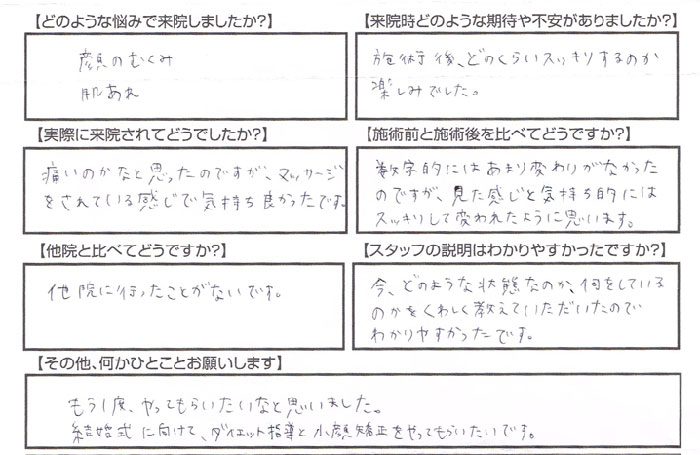 【どのような悩みで来院しましたか?】
顔のむくみ
肌あれ
【来院時どのような期待や不安がありましたか?】
施術後、どのくらいスッキリするのか
楽しみでした。
【実際に来院されてどうでしたか?】
痛いのかなと思ったのですが、マッサージ
をされている感じで気持ち良かったです。
【施術前と施術後を比べてどうですか?】
数字的にはあまり変わりがなかった
のですが、見た感じと気持ち的には
スッキリして変われたように思います。
【他院と比べてどうですか?】
他院に行ったことがないです。
【スタッフの説明はわかりやすかったですか?】
今、どのような状態なのか、何をしている
のかをくわしく教えていただいたので
わかりやすかったです。
【その他、何かひとことお願いします】
もう1度、やってもらいたいなと思いました。
結婚式に向けて、ダイエット指導と小顔矯正をやってもらいたいです。